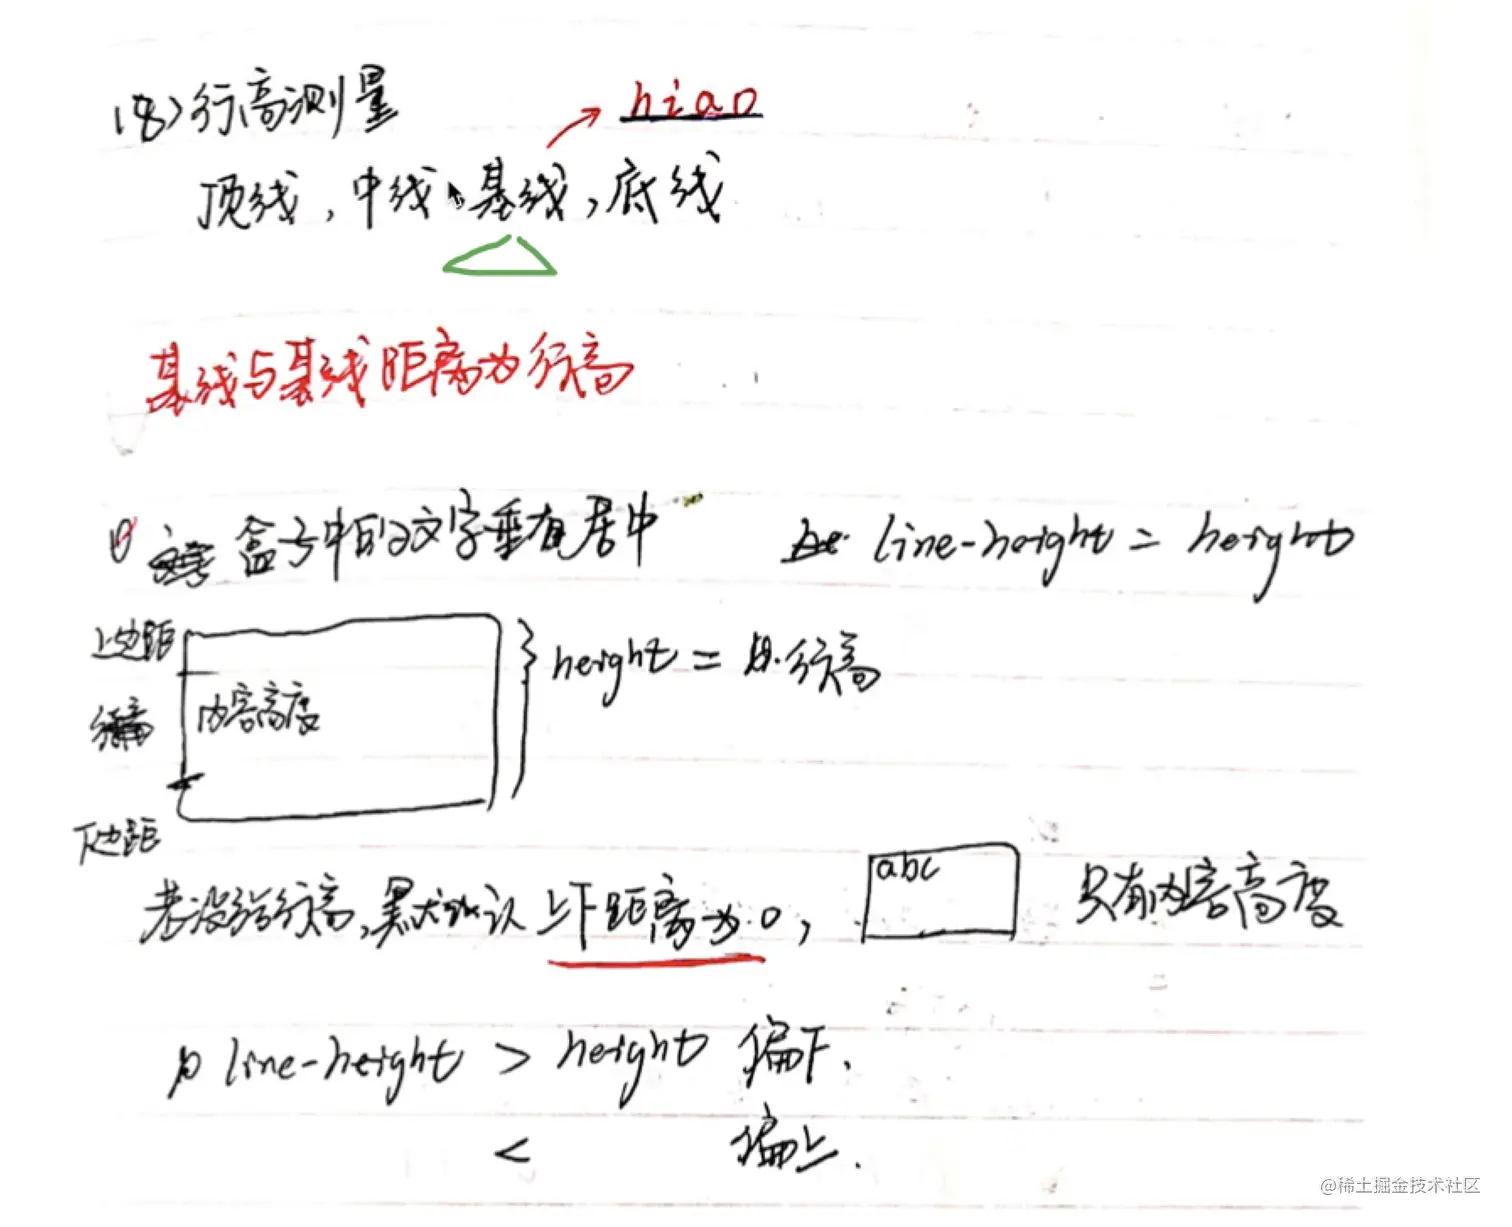 (8)行高测量
hiao
顶线,中线 基线,底线
基线与基线距离为行高
盒子中的文字垂直居中 line-height = height
上边距
height = 行高
内容高度
行高
下边距
若没给行高,默认上下距离为0, abc 只有内容高度
line-height > height 偏下.
< 偏上.
@稀土掘金技术社区